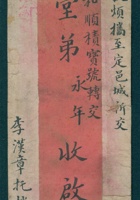 煩攜至定邑城新交
和順積寶號轉交
堂弟永年收啟
李漢章托